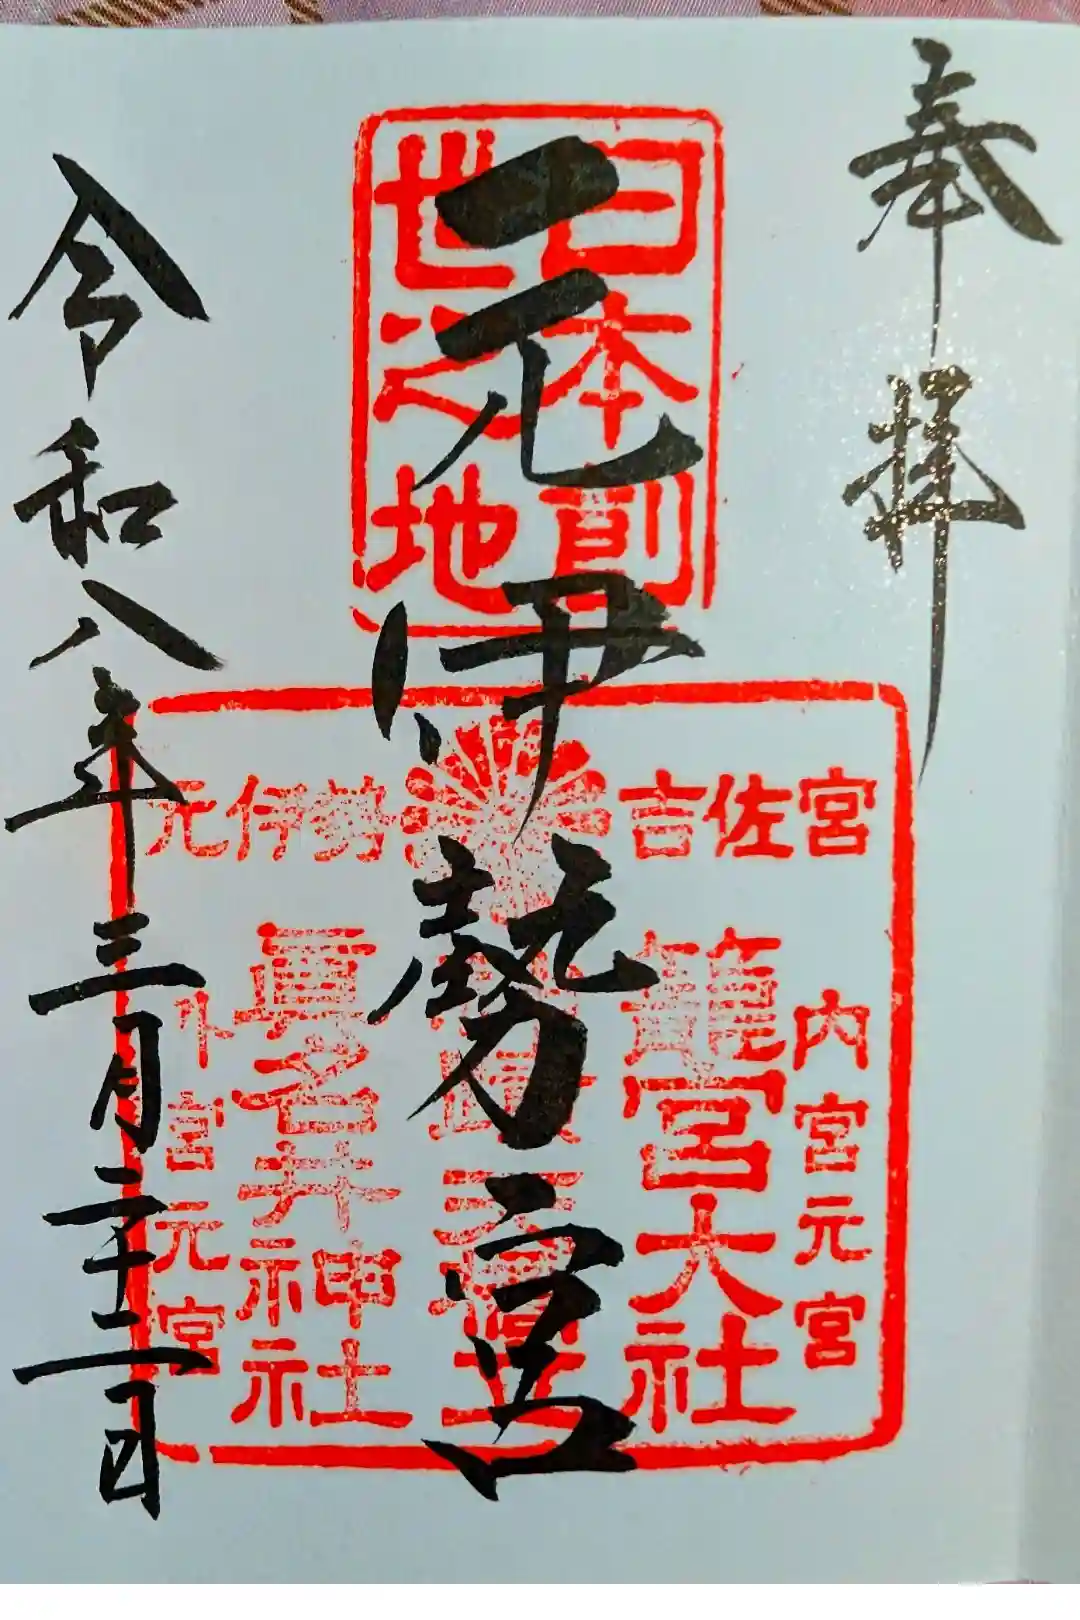 奉拝
日本創
世之地
元伊勢宮
元伊勢
吉佐宮
内宮元宮
籠宮大社
眞名井神社
外宮元宮
令和八年三月二十二日